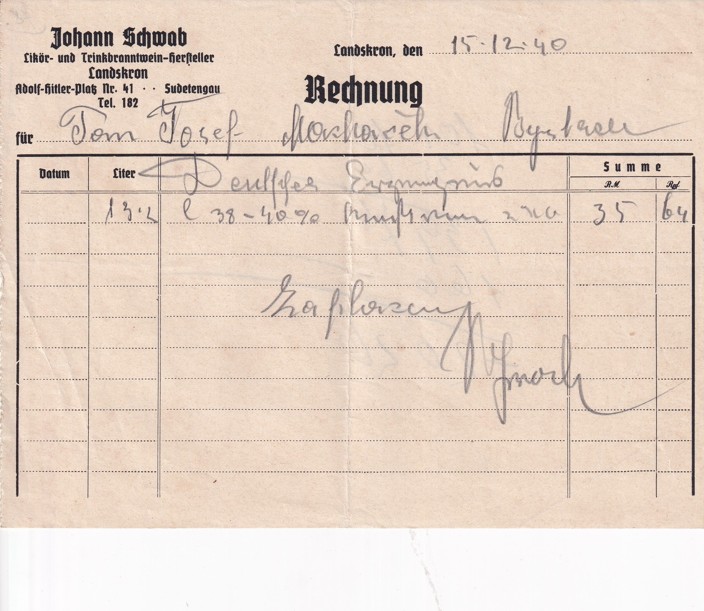 Johann Schwab
Likör- und Trinkbranntwein-Hersteller
Landskron
Adolf-Hitler-Platz Nr. 41 · · Sudetengau
Tel. 182
Landskron, den 15·12·40
Rechnung
für Pan Josef
Datum Liter Summe
RM. Rpf.
Deutsches Erzeugnis
13·2 l 38-40% 35 64
Zaplaceno